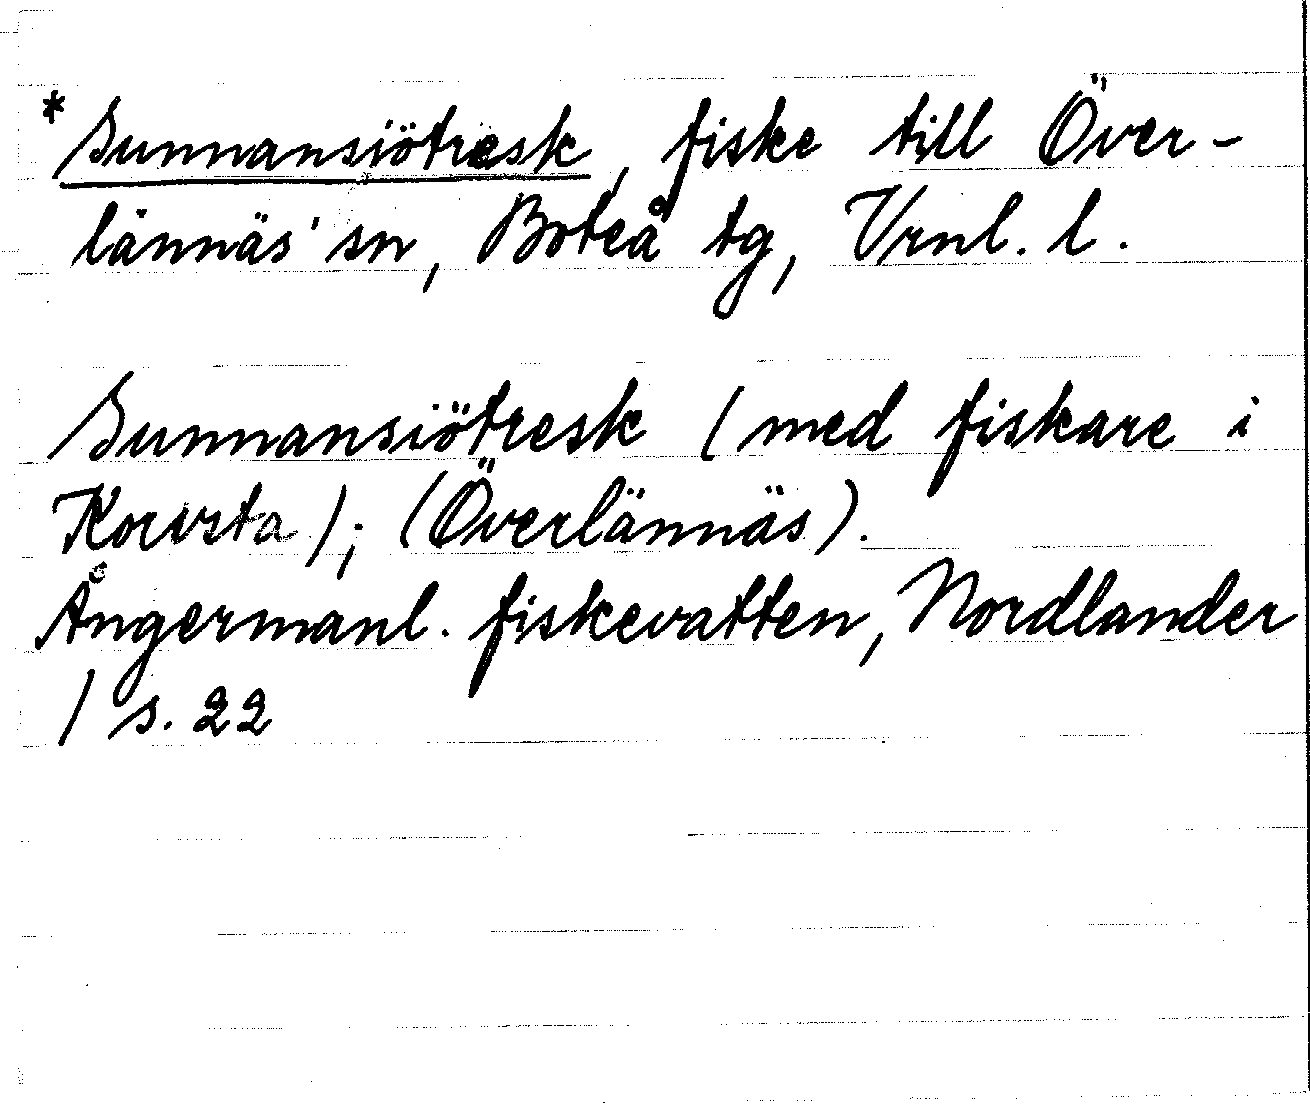 *Sunnansiötresk, fiske till Över-
lännäs' sn, Boteå tg, Vrnl. l.
Sunnansiötresk (med fiskare i
Korvsta); (Överlännäs).
Ångermanl. fiskevatten, Nordlander
/ s. 22